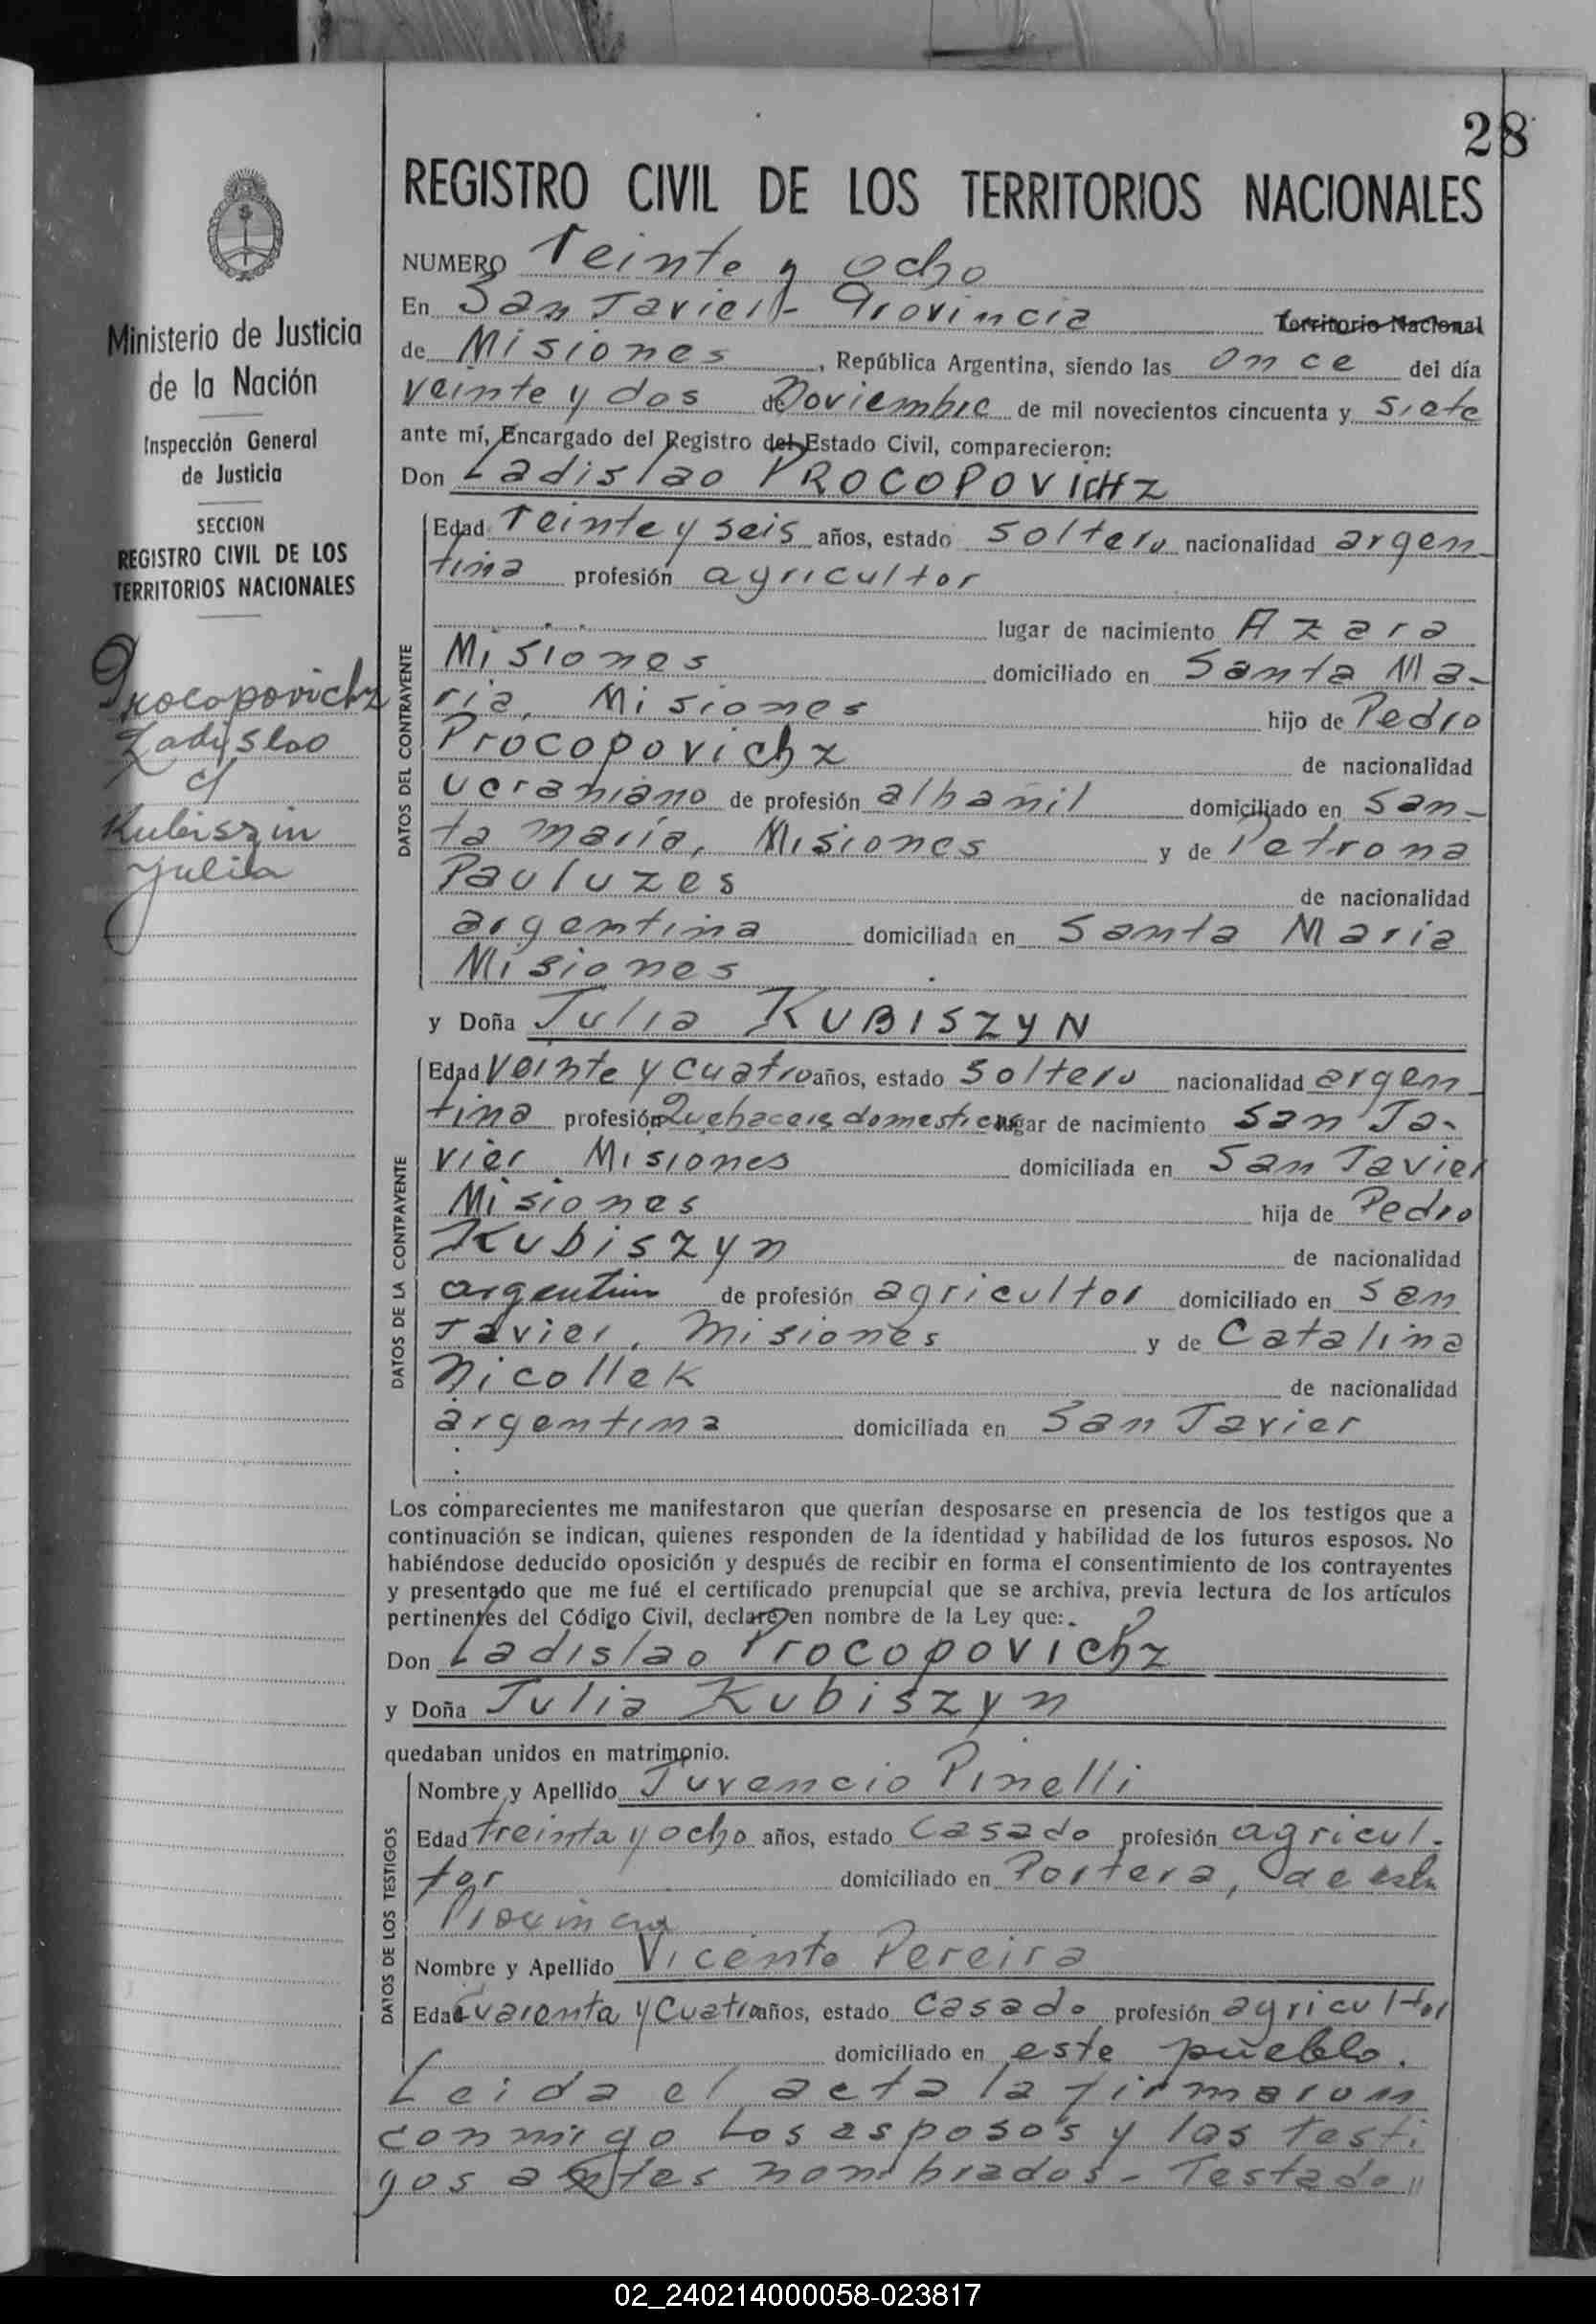 28
REGISTRO CIVIL DE LOS TERRITORIOS NACIONALES
Ministerio de Justicia
de la Nación
Inspección General
de Justicia
SECCION
REGISTRO CIVIL DE LOS
TERRITORIOS NACIONALES
Procopovichz
Ladislao
c/
Kubiszin
Julia
NUMERO Veinte y ocho
En San Javier - Provincia Territorio Nacional
de Misiones, República Argentina, siendo las once del día
veinte y dos de Noviembre de mil novecientos cincuenta y siete
ante mí, Encargado del Registro del Estado Civil, comparecieron:
Don Ladislao PROCOPOVICHZ
DATOS DEL CONTRAYENTE
Edad Veinte y seis años, estado soltero nacionalidad argen-
tina profesión agricultor
lugar de nacimiento Azara
Misiones domiciliado en Santa Ma-
ria, Misiones hijo de Pedro
Procopovichz de nacionalidad
ucraniano de profesión albañil domiciliado en San-
ta María, Misiones y de Petrona
Pauluzes de nacionalidad
argentina domiciliada en Santa Maria
Misiones
y Doña Julia KUBISZYN
DATOS DE LA CONTRAYENTE
Edad Veinte y cuatro años, estado soltero nacionalidad argen
tina profesión Quehaceres domesticos lugar de nacimiento San Ja-
vier Misiones domiciliada en San Javier
Misiones hija de Pedro
Kubiszyn de nacionalidad
argentino de profesión agricultor domiciliado en San
Javier, Misiones y de Catalina
Nicollek de nacionalidad
argentina domiciliada en San Javier
Los comparecientes me manifestaron que querían desposarse en presencia de los testigos que a
continuación se indican, quienes responden de la identidad y habilidad de los futuros esposos. No
habiéndose deducido oposición y después de recibir en forma el consentimiento de los contrayentes
y presentado que me fué el certificado prenupcial que se archiva, previa lectura de los artículos
pertinentes del Código Civil, declaré en nombre de la Ley que:
Don Ladislao Procopovichz
y Doña Julia Kubiszyn
quedaban unidos en matrimonio.
DATOS DE LOS TESTIGOS
Nombre y Apellido Juvencio Pinelli
Edad treinta y ocho años, estado Casado profesión agricul-
tor domiciliado en Portera, de esta
Provincia
Nombre y Apellido Vicente Pereira
Edad Cuarenta y Cuatro años, estado Casado profesión agricultor
domiciliado en este pueblo.
Leida el acta la firmaron
conmigo los esposos y los testi
gos antes nombrados - Testado"
02_240214000058-023817